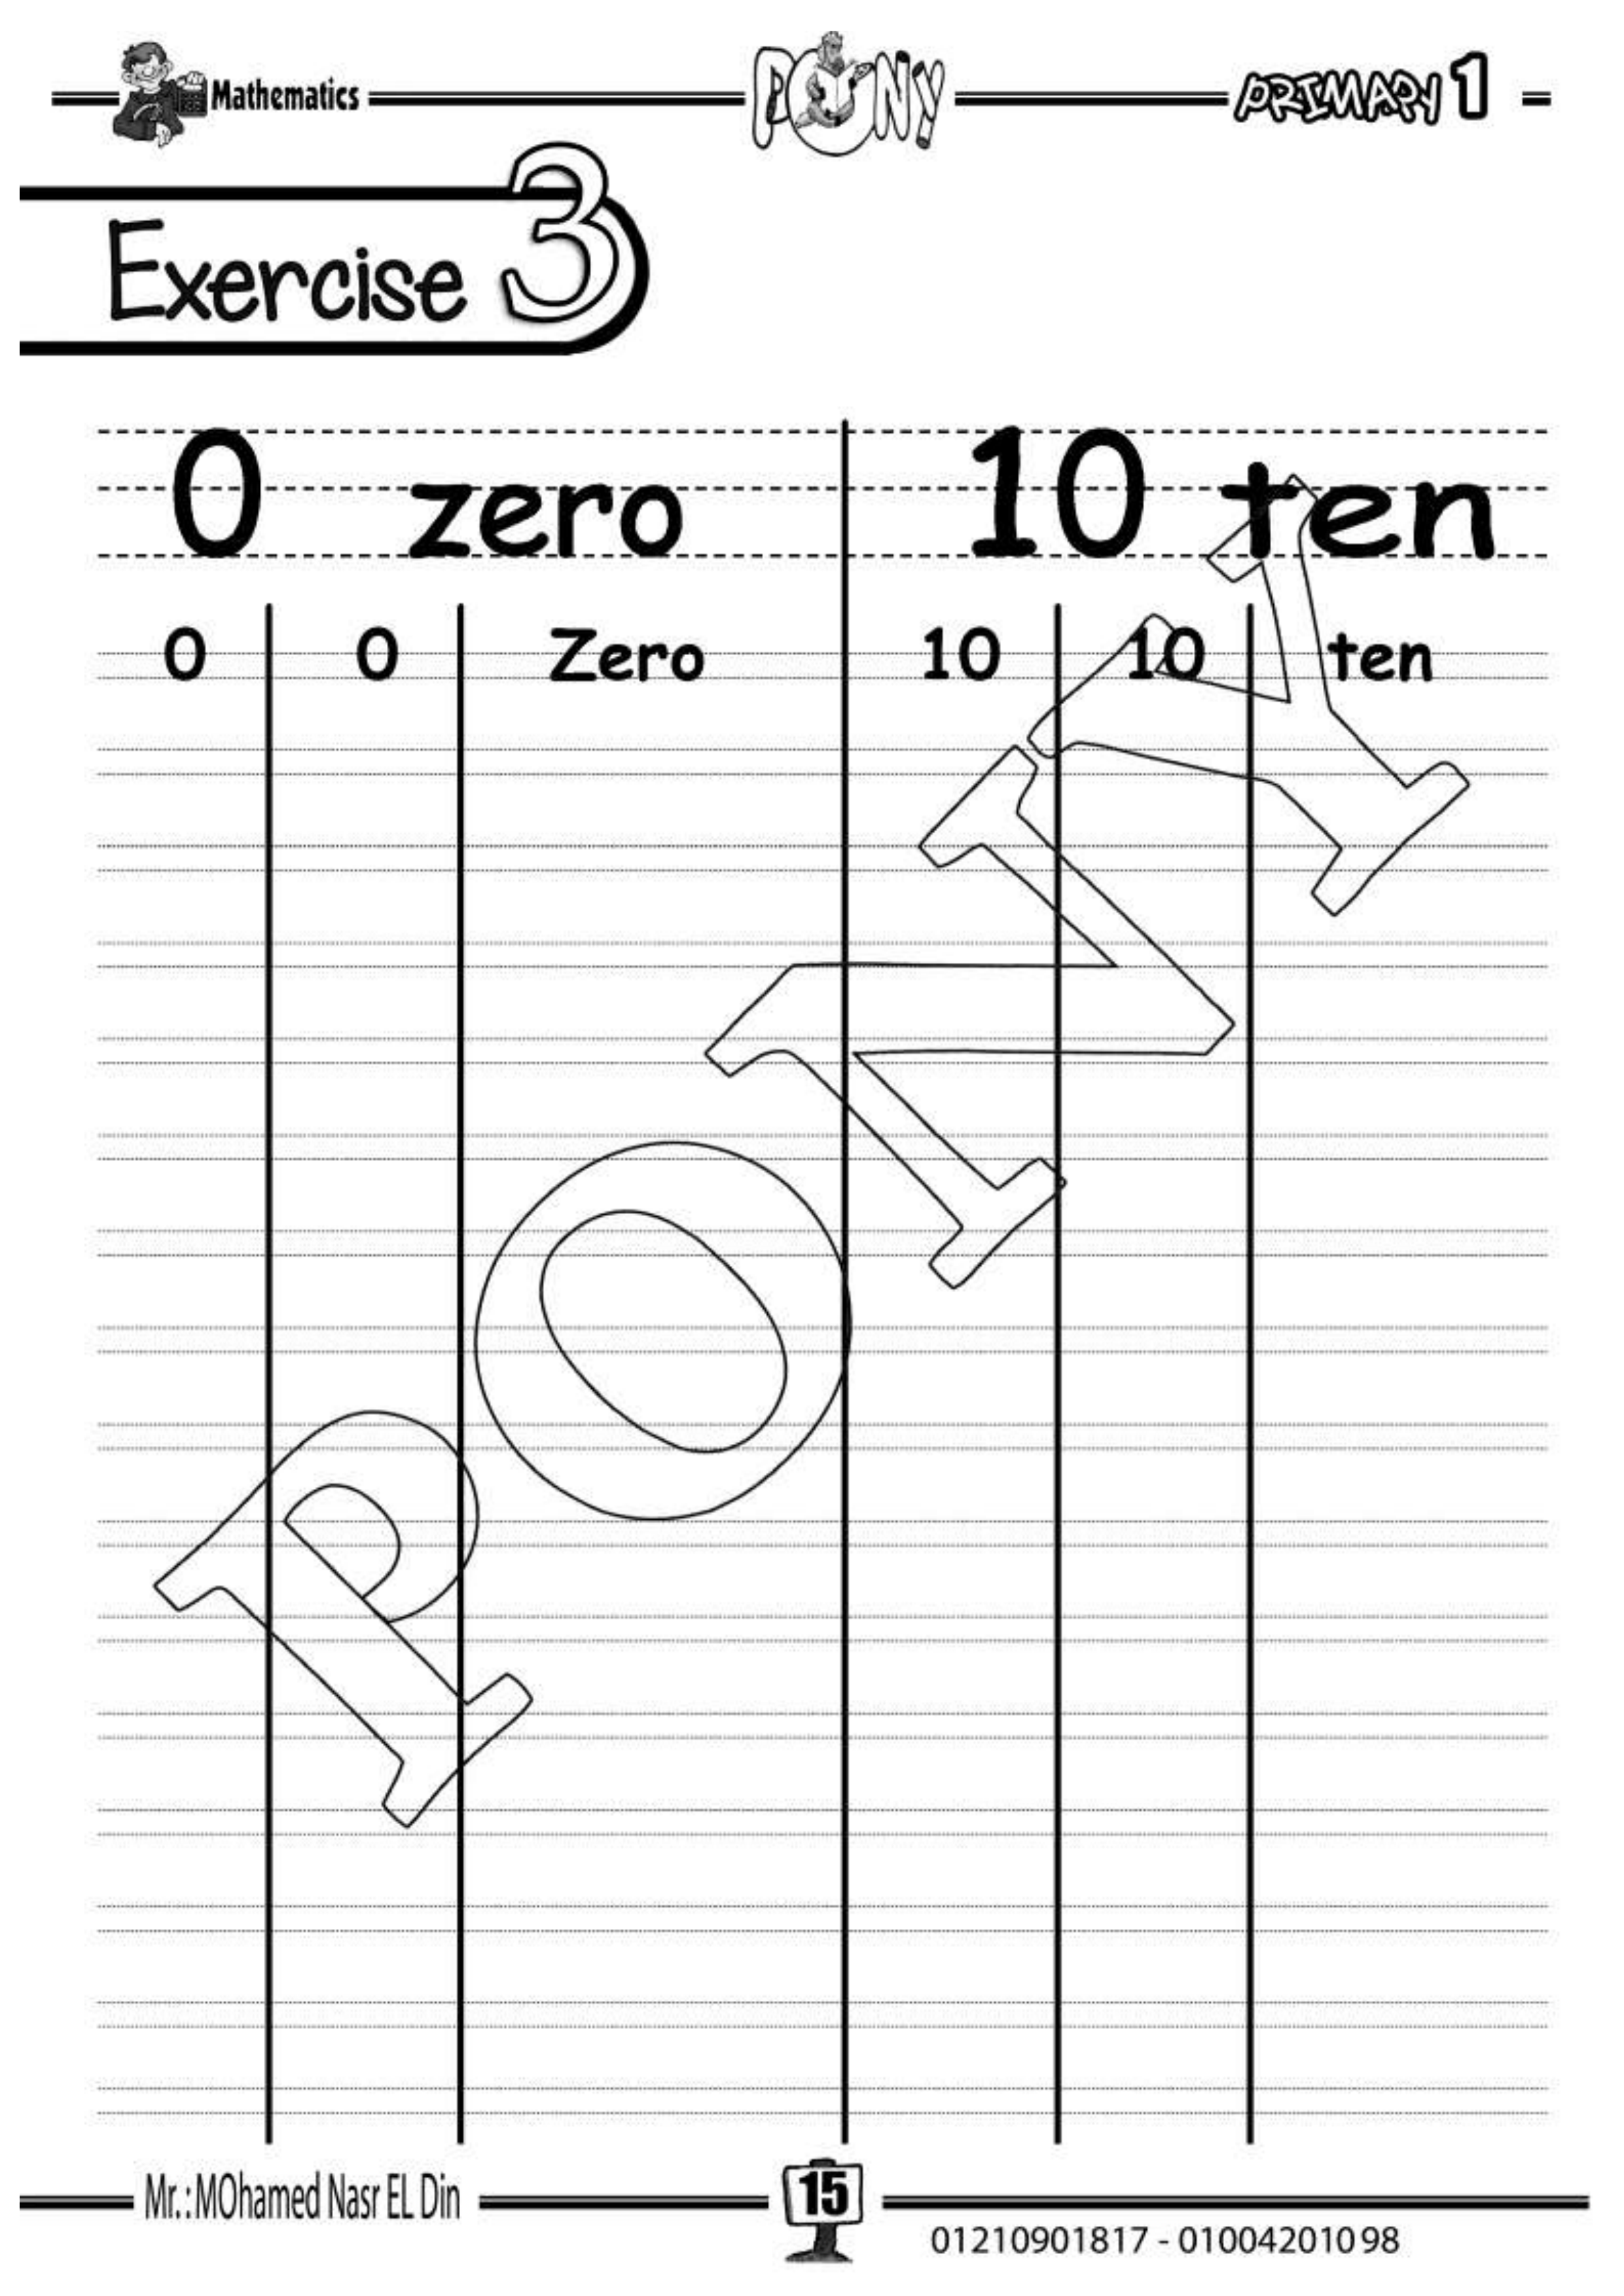 Mathematics PONY PRIMARY 1
Exercise 3
0 zero 10 ten
0 0 Zero 10 10 ten
PONY
Mr.:MOhamed Nasr EL Din 15
01210901817 - 01004201098